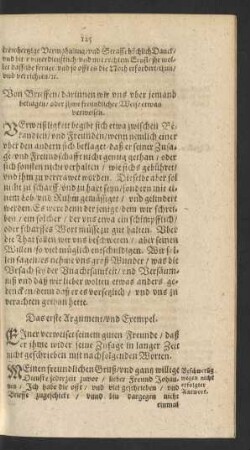 125
und verrichten/ ꝛc.
Von Brieffen/ darinnen wir uns vber jemand
beklagen/ oder jhme freundlicher Weise etwas
verweisen.
VErweißligkeit begibt sich etwa zwischen Be-
kandten/ vnd Freunden/ wenn nemlich einer
vber den andern sich beklagt/ daß er seiner Zusa-
ge/ vnd Freundschafft nicht genug gethan/ oder
sich sonsten nicht verhalten/ wie sichs gebühret
vnd jhm zu vertrawet worden. Dieselbe aber sol
nicht zu scharff vnd zu hart seyn/ sondern mit ei-
nem Lob vnd Ruhm gemässiget/ vnd gelindert
werden. Es were denn der jenige/ dem wir schrei-
ben/ ein solcher/ der vns etwa ein schimpfflich/
oder scharffes Wort müste zu gut halten. Vber
die That sollen wir vns beschweren/ aber seinen
Willen so viel müglich entschuldigen. Wir sol-
len sagen/ es nehme vns groß Wunder/ was die
Vrsach sey der Vnachtsamkeit/ vnd Versäum-
nuß/ vnd daß wir lieber wolten etwas anders ge-
dencken/ denn daß er es vorsetzlich/ vnd vns zu
verachten gethan hette.
Das erste Argument/ vnd Exempel.
EIner verweiset seinem guten Freunde/ daß
er jhme wider seine Zusage in langer Zeit
nicht geschrieben mit nachfolgenden Worten.
MEinen freundlichen Gruß/ vnd gantz willige
Dienste jederzeit zuvor/ lieber Freund Johan-
nes/ Ich habe dir offt/ vnd viel geschrieben/ vnd
Brieffe zugeschickt/ vnnd bin dargegen nicht
einmal
wegen nicht
erfolgter
Antwort.